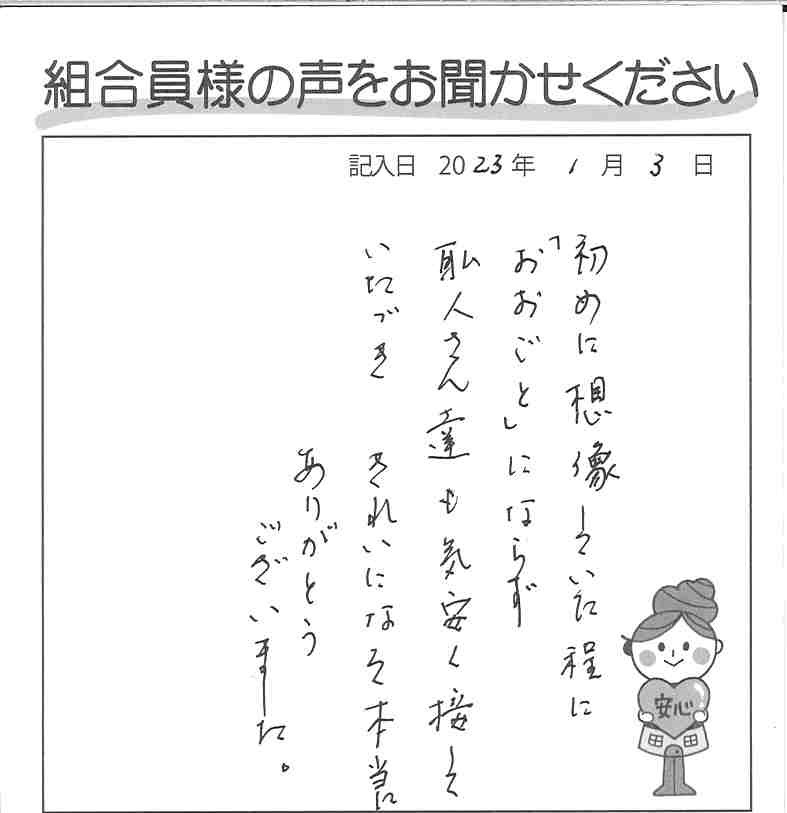 組合員様の声をお聞かせください
記入日 2023年 1月 3日
初めに想像していた程に
「おおごと」にならず
耺人さん達も気安く接して
いたゞき きれいになって本当に
ありがとう
ございました。
安心